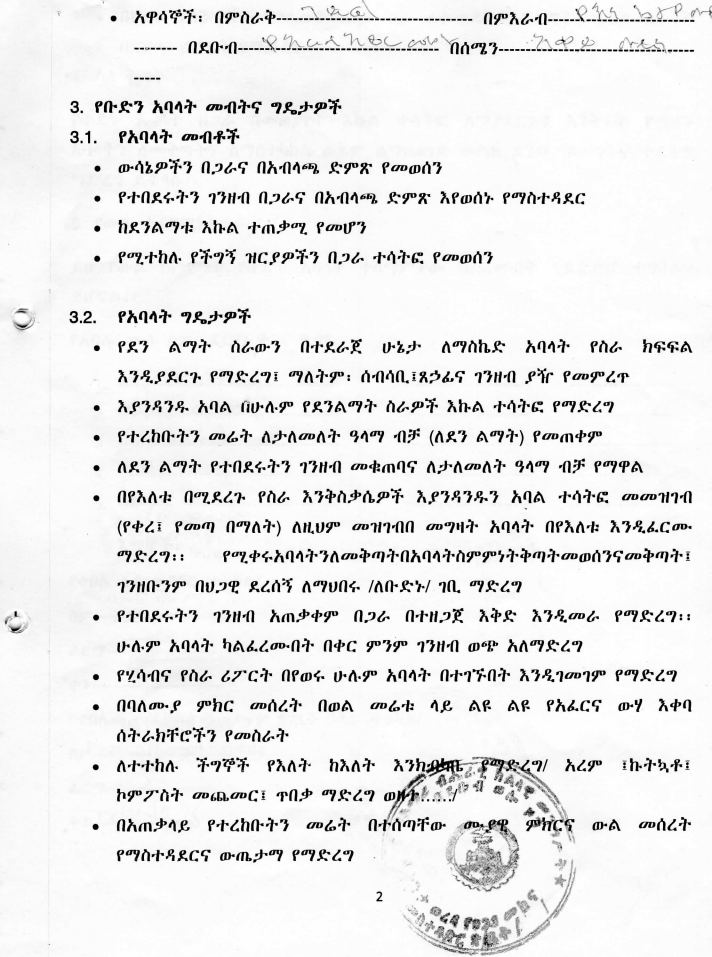 • አዋሳኞች፡ በምስራቅ-------------------------------- በምእራብ------------------------
-------- በደቡብ--------------------------------- በሰሜን--------------------------------
-----
3. የቡድን አባላት መብትና ግዴታዎች
3.1. የአባላት መብቶች
• ውሳኔዎችን በጋራና በአብላጫ ድምጽ የመወሰን
• የተበደሩትን ገንዘብ በጋራና በአብላጫ ድምጽ እየወሰኑ የማስተዳደር
• ከደንልማቱ እኩል ተጠቃሚ የመሆን
• የሚተከሉ የችግኝ ዝርያዎችን በጋራ ተሳትፎ የመወሰን
3.2. የአባላት ግዴታዎች
• የደን ልማት ስራውን በተደራጀ ሁኔታ ለማስኬድ አባላት የስራ ክፍፍል
እንዲያደርጉ የማድረግ፤ ማለትም፡ ሰብሳቢ፤ጸኃፊና ገንዘብ ያዥ የመምረጥ
• እያንዳንዱ አባል በሁሉም የደንልማት ስራዎች እኩል ተሳትፎ የማድረግ
• የተረከቡትን መሬት ለታለመለት ዓላማ ብቻ (ለደን ልማት) የመጠቀም
• ለደን ልማት የተበደሩትን ገንዘብ መቁጠባና ለታለመለት ዓላማ ብቻ የማዋል
• በየእለቱ በሚደረጉ የስራ እንቅስቃሴዎች እያንዳንዱን አባል ተሳትፎ መመዝገብ
(የቀረ፤ የመጣ በማለት) ለዚህም መዝገብበ መግዛት አባላት በየእለቱ እንዲፈርሙ
ማድረግ፡፡ የሚቀሩአባላትንለመቅጣትበአባላትስምምነትቅጣትመወሰንናመቅጣት፤
ገንዘቡንም በህጋዊ ደረሰኝ ለማህበሩ /ለቡድኑ/ ገቢ ማድረግ
• የተበደሩትን ገንዘብ አጠቃቀም በጋራ በተዘጋጀ እቅድ እንዲመራ የማድረግ፡፡
ሁሉም አባላት ካልፈረሙበት በቀር ምንም ገንዘብ ወጭ አለማድረግ
• የሂሳብና የስራ ሪፖርት በየወሩ ሁሉም አባላት በተገኙበት እንዲገመገም የማድረግ
• በባለሙያ ምክር መሰረት በወል መሬቱ ላይ ልዩ ልዩ የአፈርና ውሃ እቀባ
ሰትራክቸሮችን የመስራት
• ለተተከሉ ችግኞች የእለት ከእለት እንክብካቤ የማድረግ/ አረም ፤ኩትኳቶ፤
ኮምፖስት መጨመር፤ ጥበቃ ማድረግ ወዘተ....../
• በአጠቃላይ የተረከቡትን መሬት በተሰጣቸው ሙያዊ ምክርና ውል መሰረት
የማስተዳደርና ውጤታማ የማድረግ
2